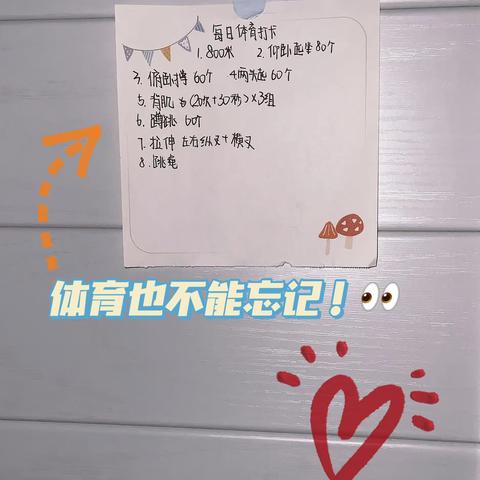 每日体育打卡
1.800米 2.仰卧起坐80个
3.俯卧撑 60个 4.两头起60个
5.背肌 为(20次+30秒)×3组
6.蹲跳 60个
7.拉伸 左右纵叉+横叉
8.跳绳
体育也不能忘记!